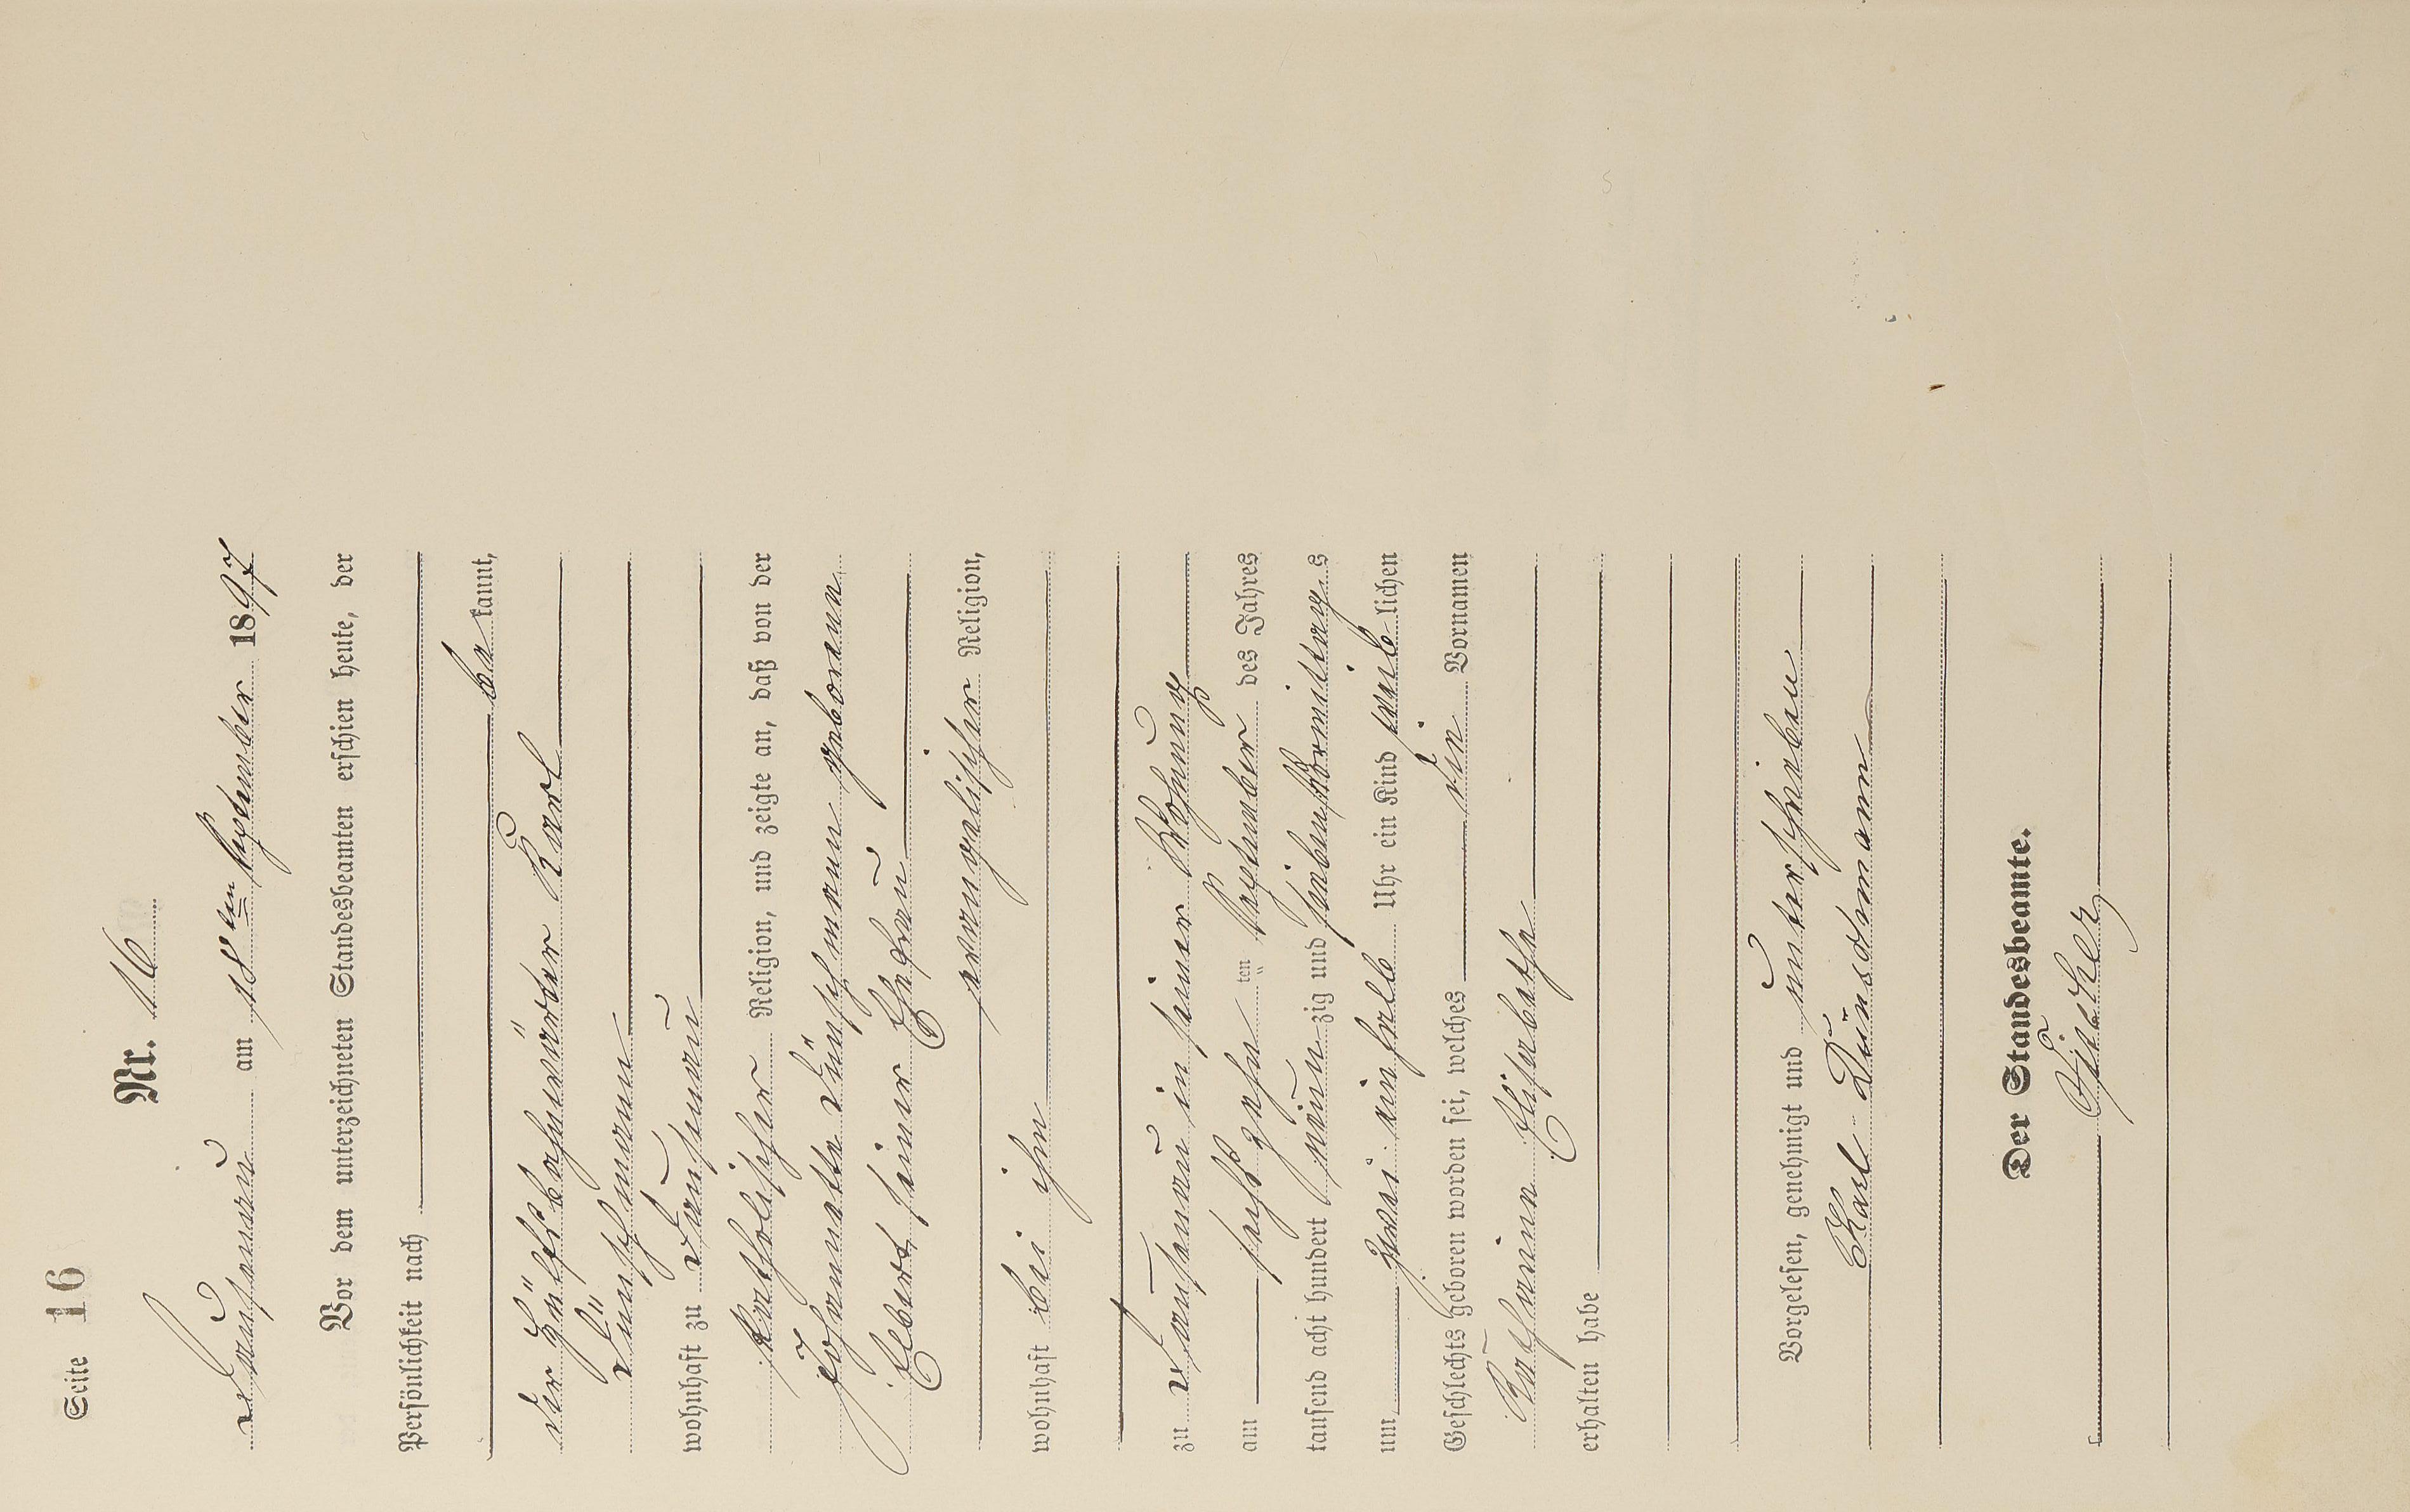 Seite 16
Nr. 16
Dausenau am 18ten September 1897
Vor dem unterzeichneten Standesbeamten erschien heute, der
Persönlichkeit nach
be kannt,
der Hülfsbahnwärter Karl
Dünschmann
wohnhaft zu Dausenau
katholischer Religion, und zeigte an, daß von der
Johannette Dünschmann geborene
Elbert seiner Ehefrau
evangelischer Religion,
wohnhaft bei ihm
zu Dausenau in seiner Wohnung
am sechszehn ten September des Jahres
tausend acht hundert neun zig und sieben Vormittags
um zwei einhalb Uhr ein Kind weib lichen
Geschlechts geboren worden sei, welches die Vornamen
Katharine Elisabethe
erhalten habe
Vorgelesen, genehmigt und unterschrieben
Karl Dünschmann
Der Standesbeamte.